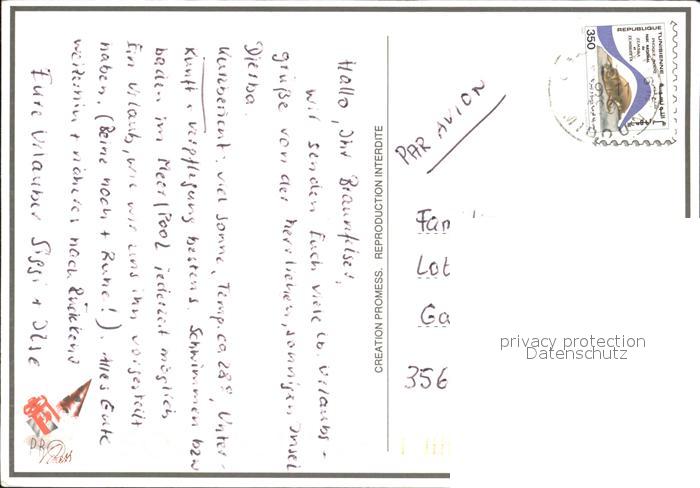 Hallo, Ihr Braunfelser,
wir senden Euch viele lb. Urlaubs-
grüße von der herrlichen, sonnigen Insel
Djerba.
Kurzbericht: viel Sonne, Temp. ca. 28°, Unter-
kunft u. Verpflegung bestens. Schwimmen bzw
baden im Meer/Pool jederzeit möglich
Ein Urlaub, wie wir uns ihn vorgestellt
haben. (Beine hoch + Ruhe!). Alles Gute
weiterhin + näheres nach Rückkehr
Eure Urlauber Siggi + Ilse
CREATION PROMESS. REPRODUCTION INTERDITE
PAR AVION
REPUBLIQUE TUNISIENNE
350
Fam
Lot
Ga
356
privacy protection
Datenschutz